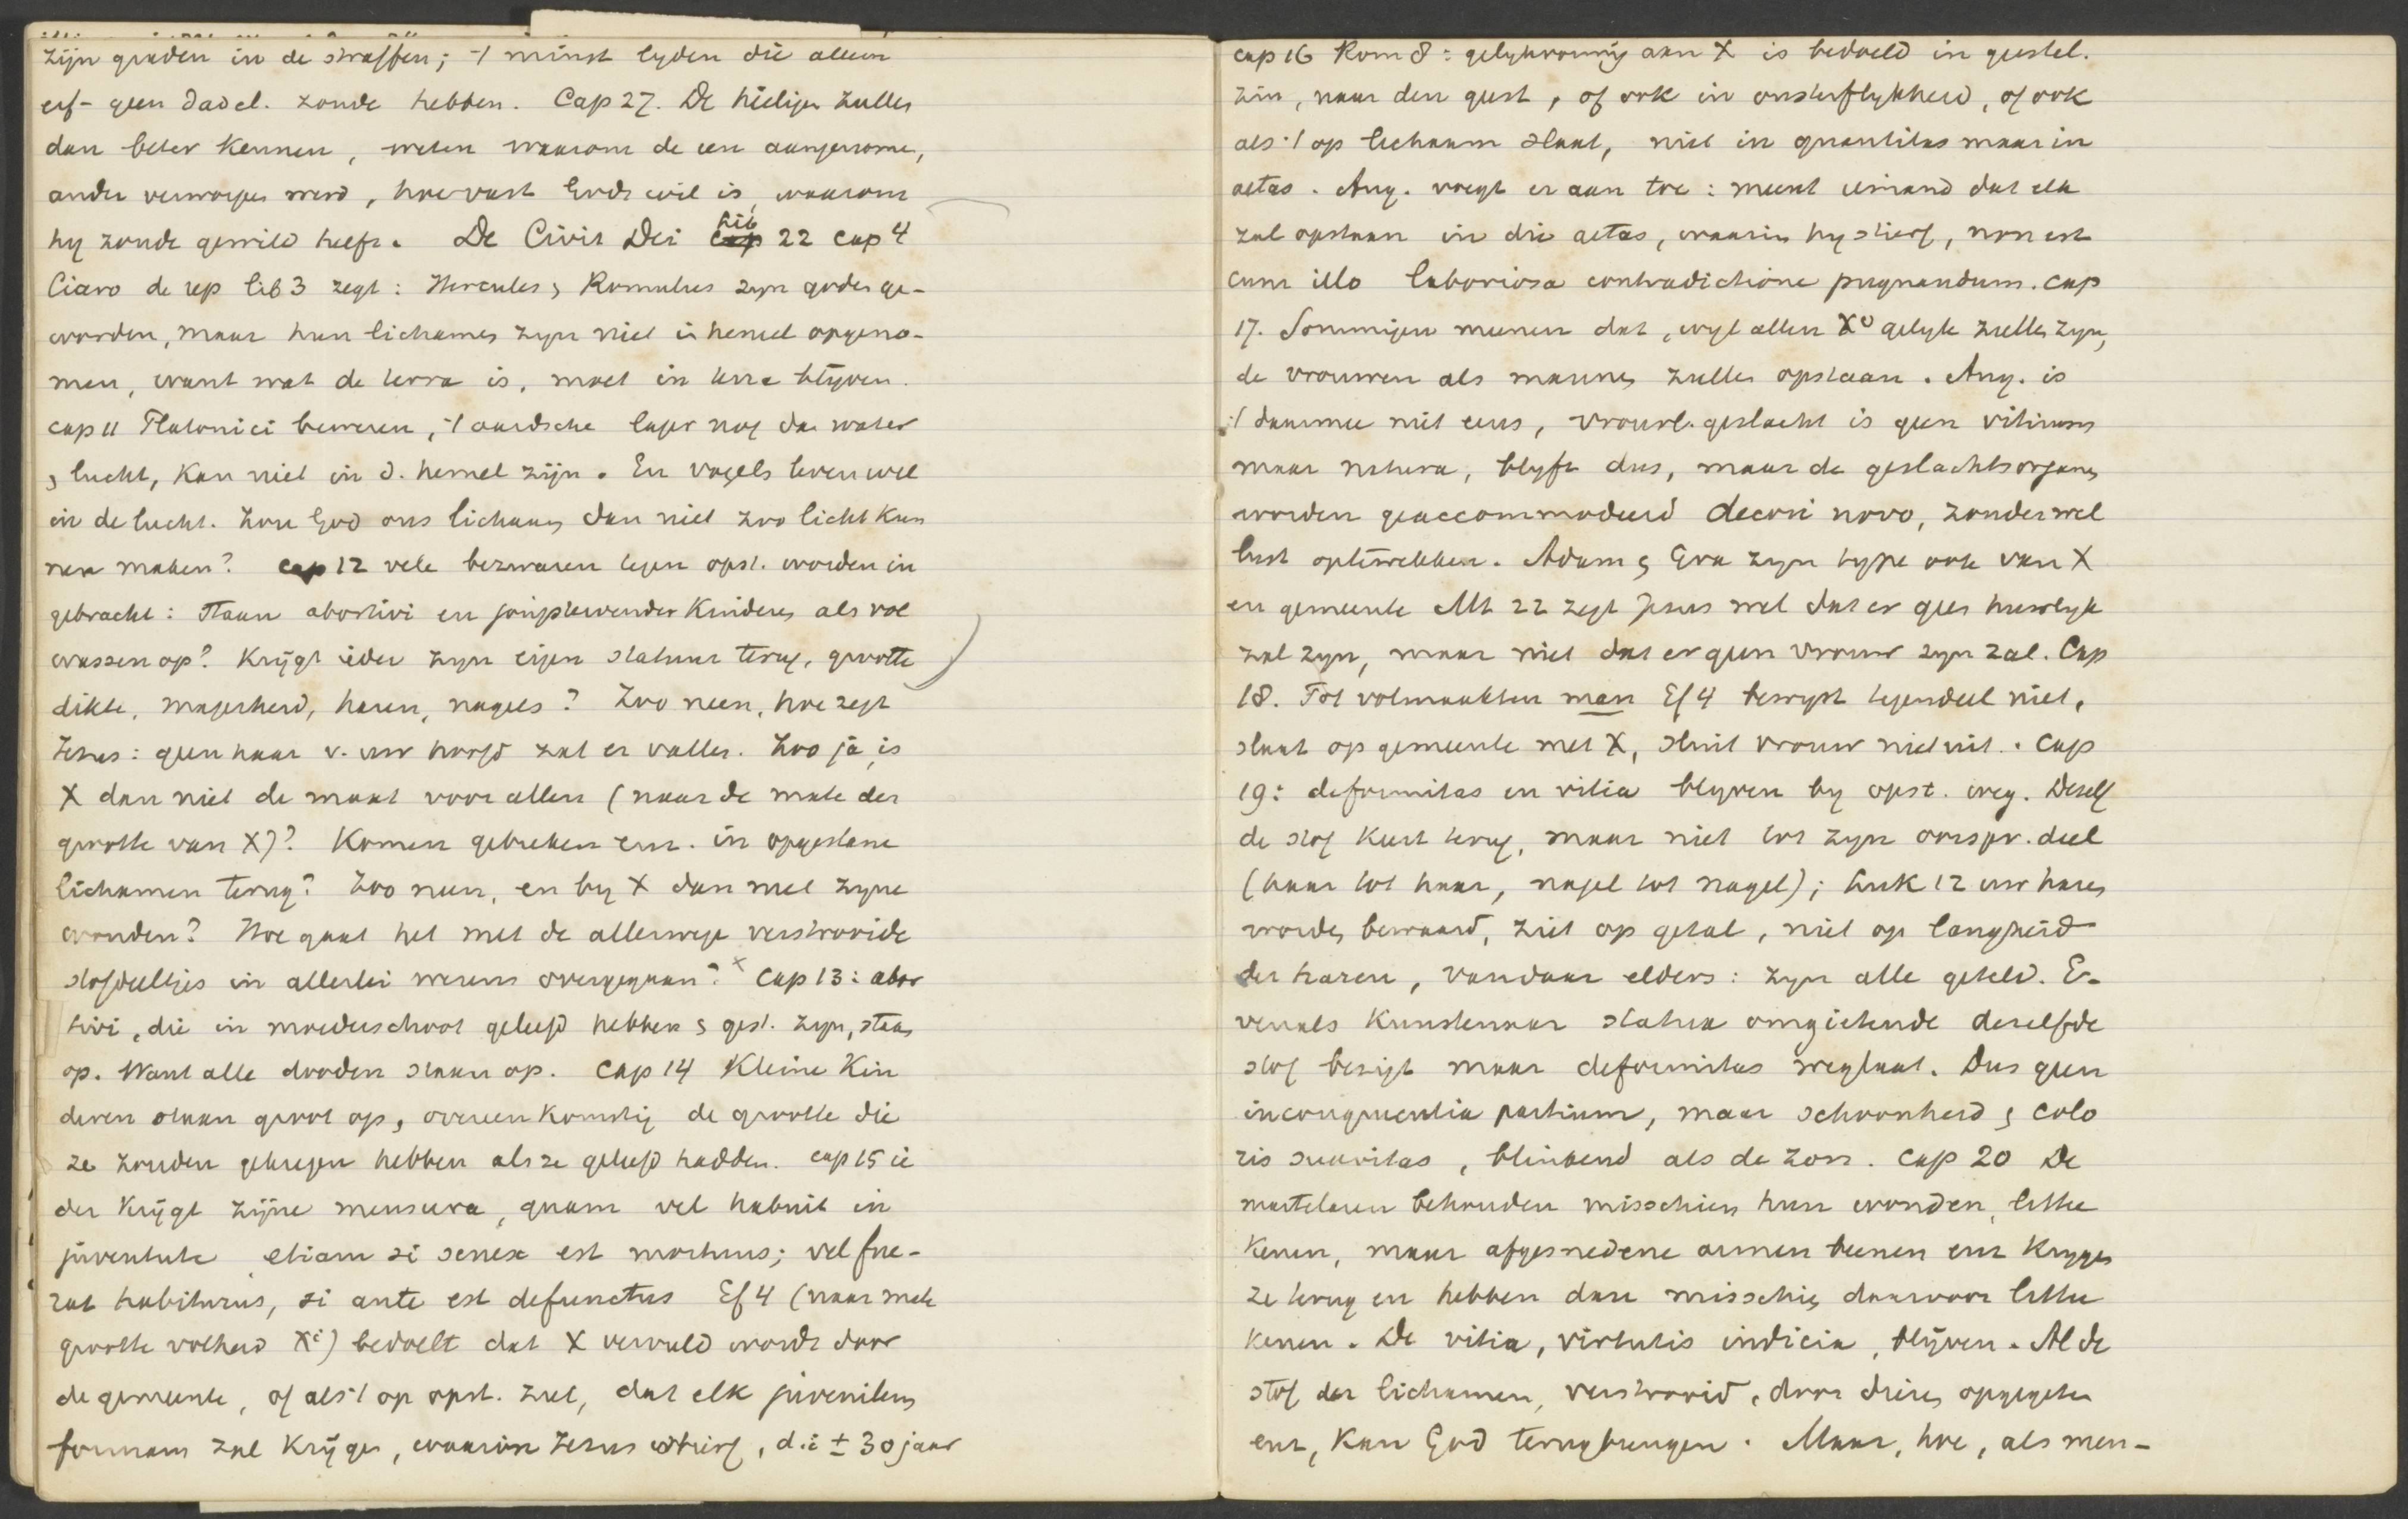 zijn graden in de straffen; 't minst lyden die alleen
erf- geen dadel. zonde hebben. Cap 27. De heiligen zullen
dan beter kennen, weten waarom de een aangenome,
ander verworpen werd, hoe vast Gods wil is, waarom
hy zonde gewild heeft. De Civit Dei lib 22 cap 4
Cicero de rep lib 3 zegt: Hercules & Romulus zyn goden ge-
worden, maar hun lichamen zyn niet in hemel opgeno-
men, want wat de terra is, moet in terra blijven.
cap 11 Platonici beweren, 't aardsche lager nog dan water
& lucht, kan niet in d. hemel zijn. En vogels leven wel
in de lucht. Zou God ons lichaam dan niet zoo licht kun
nen maken? cap 12 vele bezwaren tegen opst. worden in
gebracht: Staan abortivi en jongstervende kinderen als vol
wassen op? Krijgt ieder zyn eigen statuur terug, grootte
dikte, magerheid, haren, nagels? Zoo neen, hoe zegt
Jezus: geen haar v. uw hoofd zal er vallen. Zoo ja, is
X dan niet de maat voor allen (naar de mate der
grootte van X)? Komen gebreken enz. in opgestane
lichamen terug? Zoo neen, en by X dan met zyne
wonden? Hoe gaat het met de allerwege verstrooide
stofdeeltjes in allerlei wezens overgegaan? x Cap 13: abor
tivi, die in moederschoot geleefd hebben & gest. zyn, staan
op. Want alle dooden staan op. Cap 14 Kleine Kin
deren staan groot op, overeenkomstig de grootte die
ze zouden gekregen hebben als ze geleefd hadden. cap 15 ie
der krijgt zijne mensura, quam vel habuit in
juventute etiam si senex est mortuus; vel fue-
rat habiturus, si ante est defunctus Ef 4 (naar mate
grootte volheid Xi) bedoelt dat X vervuld wordt door
de gemeente, of als 't op opst. ziet, dat elk juvenilem
formam zal krijgen, waarin Jezus stierf, d.i ± 30 jaar
cap 16 Rom 8: gelykvormig aan X is bedoeld in geestel.
zin, naar den geest, of ook in onsterflykheid, of ook
als 't op lichaam slaat, niet in quantitas maar in
aetas. Aug. voegt er aan toe: meent iemand dat elk
zal opstaan in die aetas, waarin hy stierf, non est
cum illo laboriosa contradictione pugnandum. cap
17. Sommigen meenen dat, wyl allen Xo gelyk zullen zyn,
de vrouwen als mannen zullen opstaan. Aug. is
't daarmee niet eens, vrouwl. geslacht is geen vitium
maar natura, blyft dus, maar de geslachtsorganen
worden geaccommodeerd decori novo, zonder wel
lust optewekken. Adam & Eva zyn type ook van X
en gemeente Mt 22 zegt Jesus wel dat er geen huwelyk
zal zyn, maar niet dat er geen vrouw zyn zal. Cap
18. Tot volmaakten man Ef 4 bewyst tegendeel niet,
slaat op gemeente met X, sluit vrouw niet uit. Cap
19: deformitas en vitia blyven by opst. weg. Deself
de stof keert terug, maar niet tot zyn oorspr. deel
(haar tot haar, nagel tot nagel); Luk 12 uw haren
worden bewaard, ziet op getal, niet op langheid
der haren, vandaar elders: zyn alle geteld. E-
venals kunstenaar statua omgietende deselfde
stof besigt maar deformitas weglaat. Dus geen
incongruentia partium, maar schoonheid & colo
ris suavitas, blinkend als de zon. Cap 20 De
martelaren behouden misschien hun wonden, littee
kenen, maar afgesnedene armen beenen enz krygen
ze terug en hebben dan misschien daarvoor littee
kenen. De vitia, virtutis indicia, blijven. Al de
stof der lichamen, verstrooid, door dieren opgegeten
enz, kan God terugbrengen. Maar, hoe, als men-